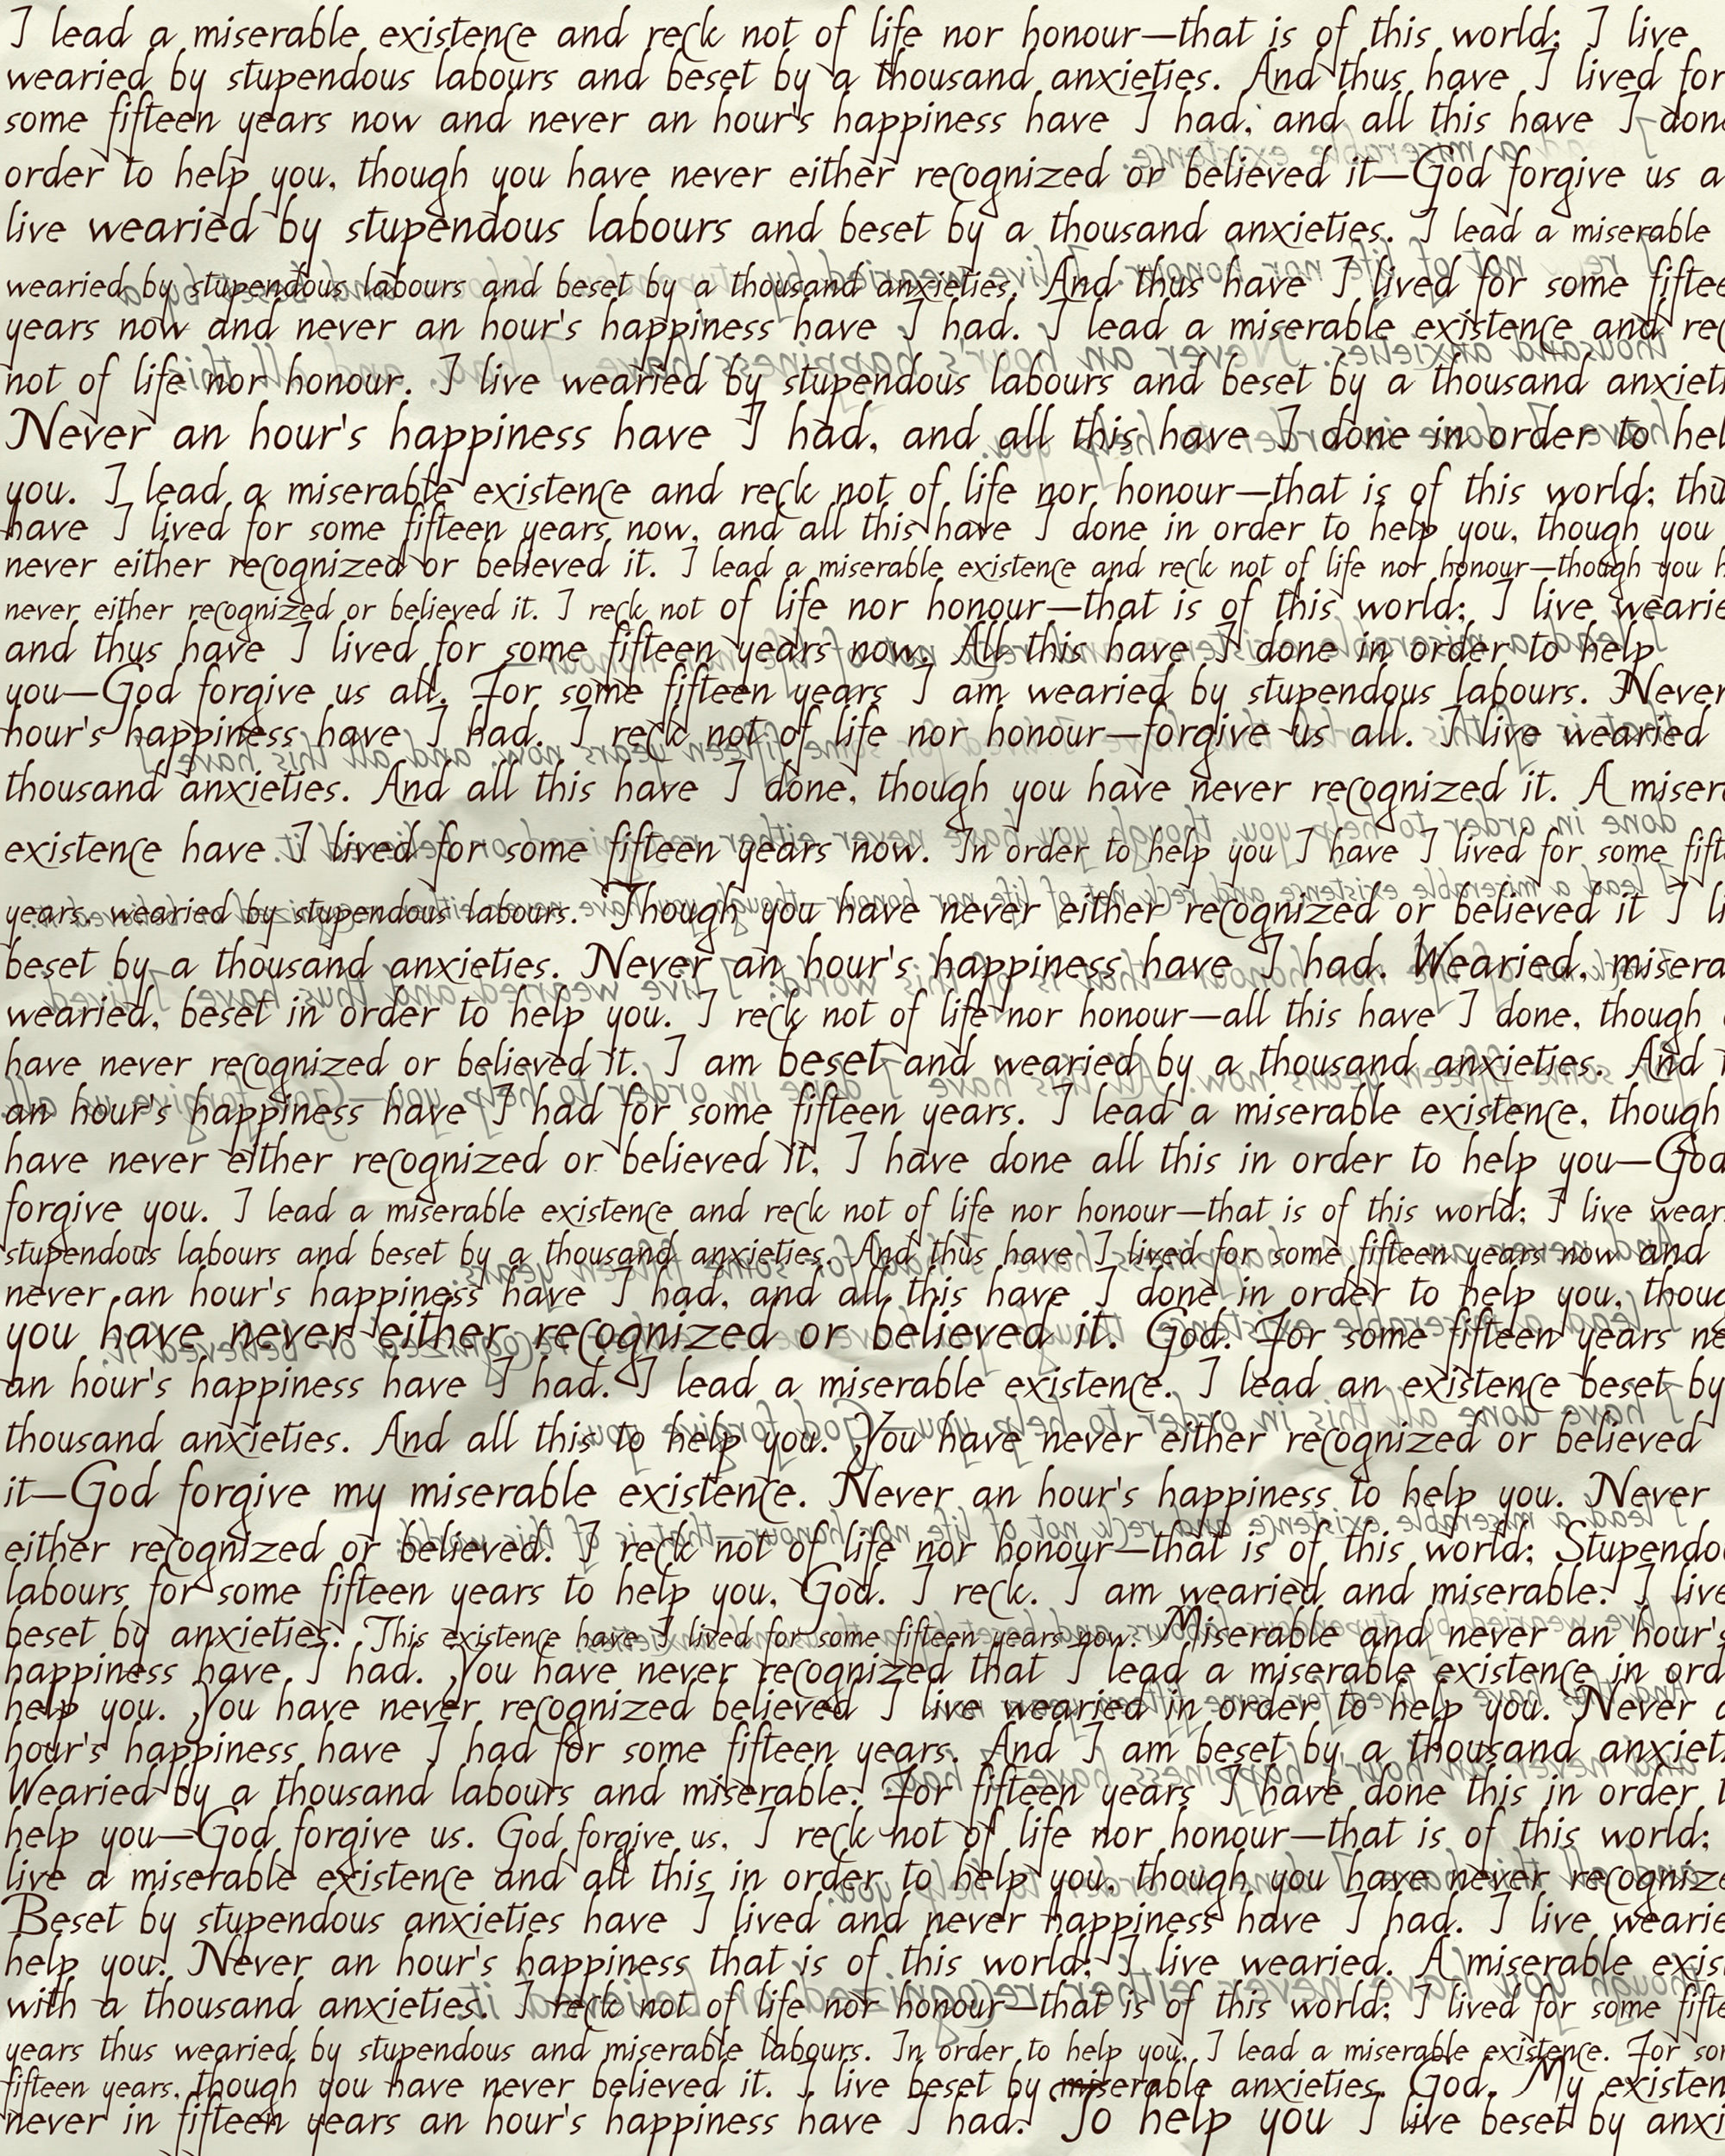 I lead a miserable existence and reck not of life nor honour—that is of this world; I live
wearied by stupendous labours and beset by a thousand anxieties. And thus have I lived for
some fifteen years now and never an hour's happiness have I had, and all this have I don
order to help you, though you have never either recognized or believed it—God forgive us a
live wearied by stupendous labours and beset by a thousand anxieties. I lead a miserable
wearied by stupendous labours and beset by a thousand anxieties. And thus have I lived for some fiftee
years now and never an hour's happiness have I had. I lead a miserable existence and rec
not of life nor honour. I live wearied by stupendous labours and beset by a thousand anxieti
Never an hour's happiness have I had, and all this have I done in order to hel
you. I lead a miserable existence and reck not of life nor honour—that is of this world; thu
have I lived for some fifteen years now, and all this have I done in order to help you, though you
never either recognized or believed it. I lead a miserable existence and reck not of life nor honour—though you h
never either recognized or believed it. I reck not of life nor honour—that is of this world; I live wearie
and thus have I lived for some fifteen years now. All this have I done in order to help
you—God forgive us all. For some fifteen years I am wearied by stupendous labours. Never
hour's happiness have I had. I reck not of life nor honour—forgive us all. I live wearied
thousand anxieties. And all this have I done, though you have never recognized it. A misera
existence have I lived for some fifteen years now. In order to help you I have I lived for some fifte
years, wearied by stupendous labours. Though you have never either recognized or believed it I li
beset by a thousand anxieties. Never an hour's happiness have I had. Wearied, misera
wearied, beset in order to help you. I reck not of life nor honour—all this have I done, though
have never recognized or believed it. I am beset and wearied by a thousand anxieties. And
an hour's happiness have I had for some fifteen years. I lead a miserable existence, though
have never either recognized or believed it, I have done all this in order to help you—God
forgive you. I lead a miserable existence and reck not of life nor honour—that is of this world; I live wear
stupendous labours and beset by a thousand anxieties. And thus have I lived for some fifteen years now and
never an hour's happiness have I had, and all this have I done in order to help you, thoug
you have never either recognized or believed it. God. For some fifteen years ne
an hour's happiness have I had. I lead a miserable existence. I lead an existence beset by
thousand anxieties. And all this to help you. You have never either recognized or believed
it—God forgive my miserable existence. Never an hour's happiness to help you. Never
either recognized or believed. I reck not of life nor honour—that is of this world; Stupendo
labours for some fifteen years to help you, God. I reck. I am wearied and miserable. I live
beset by anxieties. This existence have I lived for some fifteen years now. Miserable and never an hour's
happiness have I had. You have never recognized that I lead a miserable existence in ord
help you. You have never recognized believed I live wearied in order to help you. Never a
hour's happiness have I had for some fifteen years. And I am beset by a thousand anxiet
Wearied by a thousand labours and miserable. For fifteen years I have done this in order t
help you—God forgive us. God forgive us, I reck not of life nor honour—that is of this world;
live a miserable existence and all this in order to help you, though you have never recognize
Beset by stupendous anxieties have I lived and never happiness have I had. I live wearie
help you. Never an hour's happiness that is of this world; I live wearied. A miserable exis
with a thousand anxieties. I reck not of life nor honour—that is of this world; I lived for some fifte
years thus wearied by stupendous and miserable labours. In order to help you, I lead a miserable existence. For so
fifteen years, though you have never believed it. I live beset by miserable anxieties. God. My existen
never in fifteen years an hour's happiness have I had. To help you I live beset by anxi